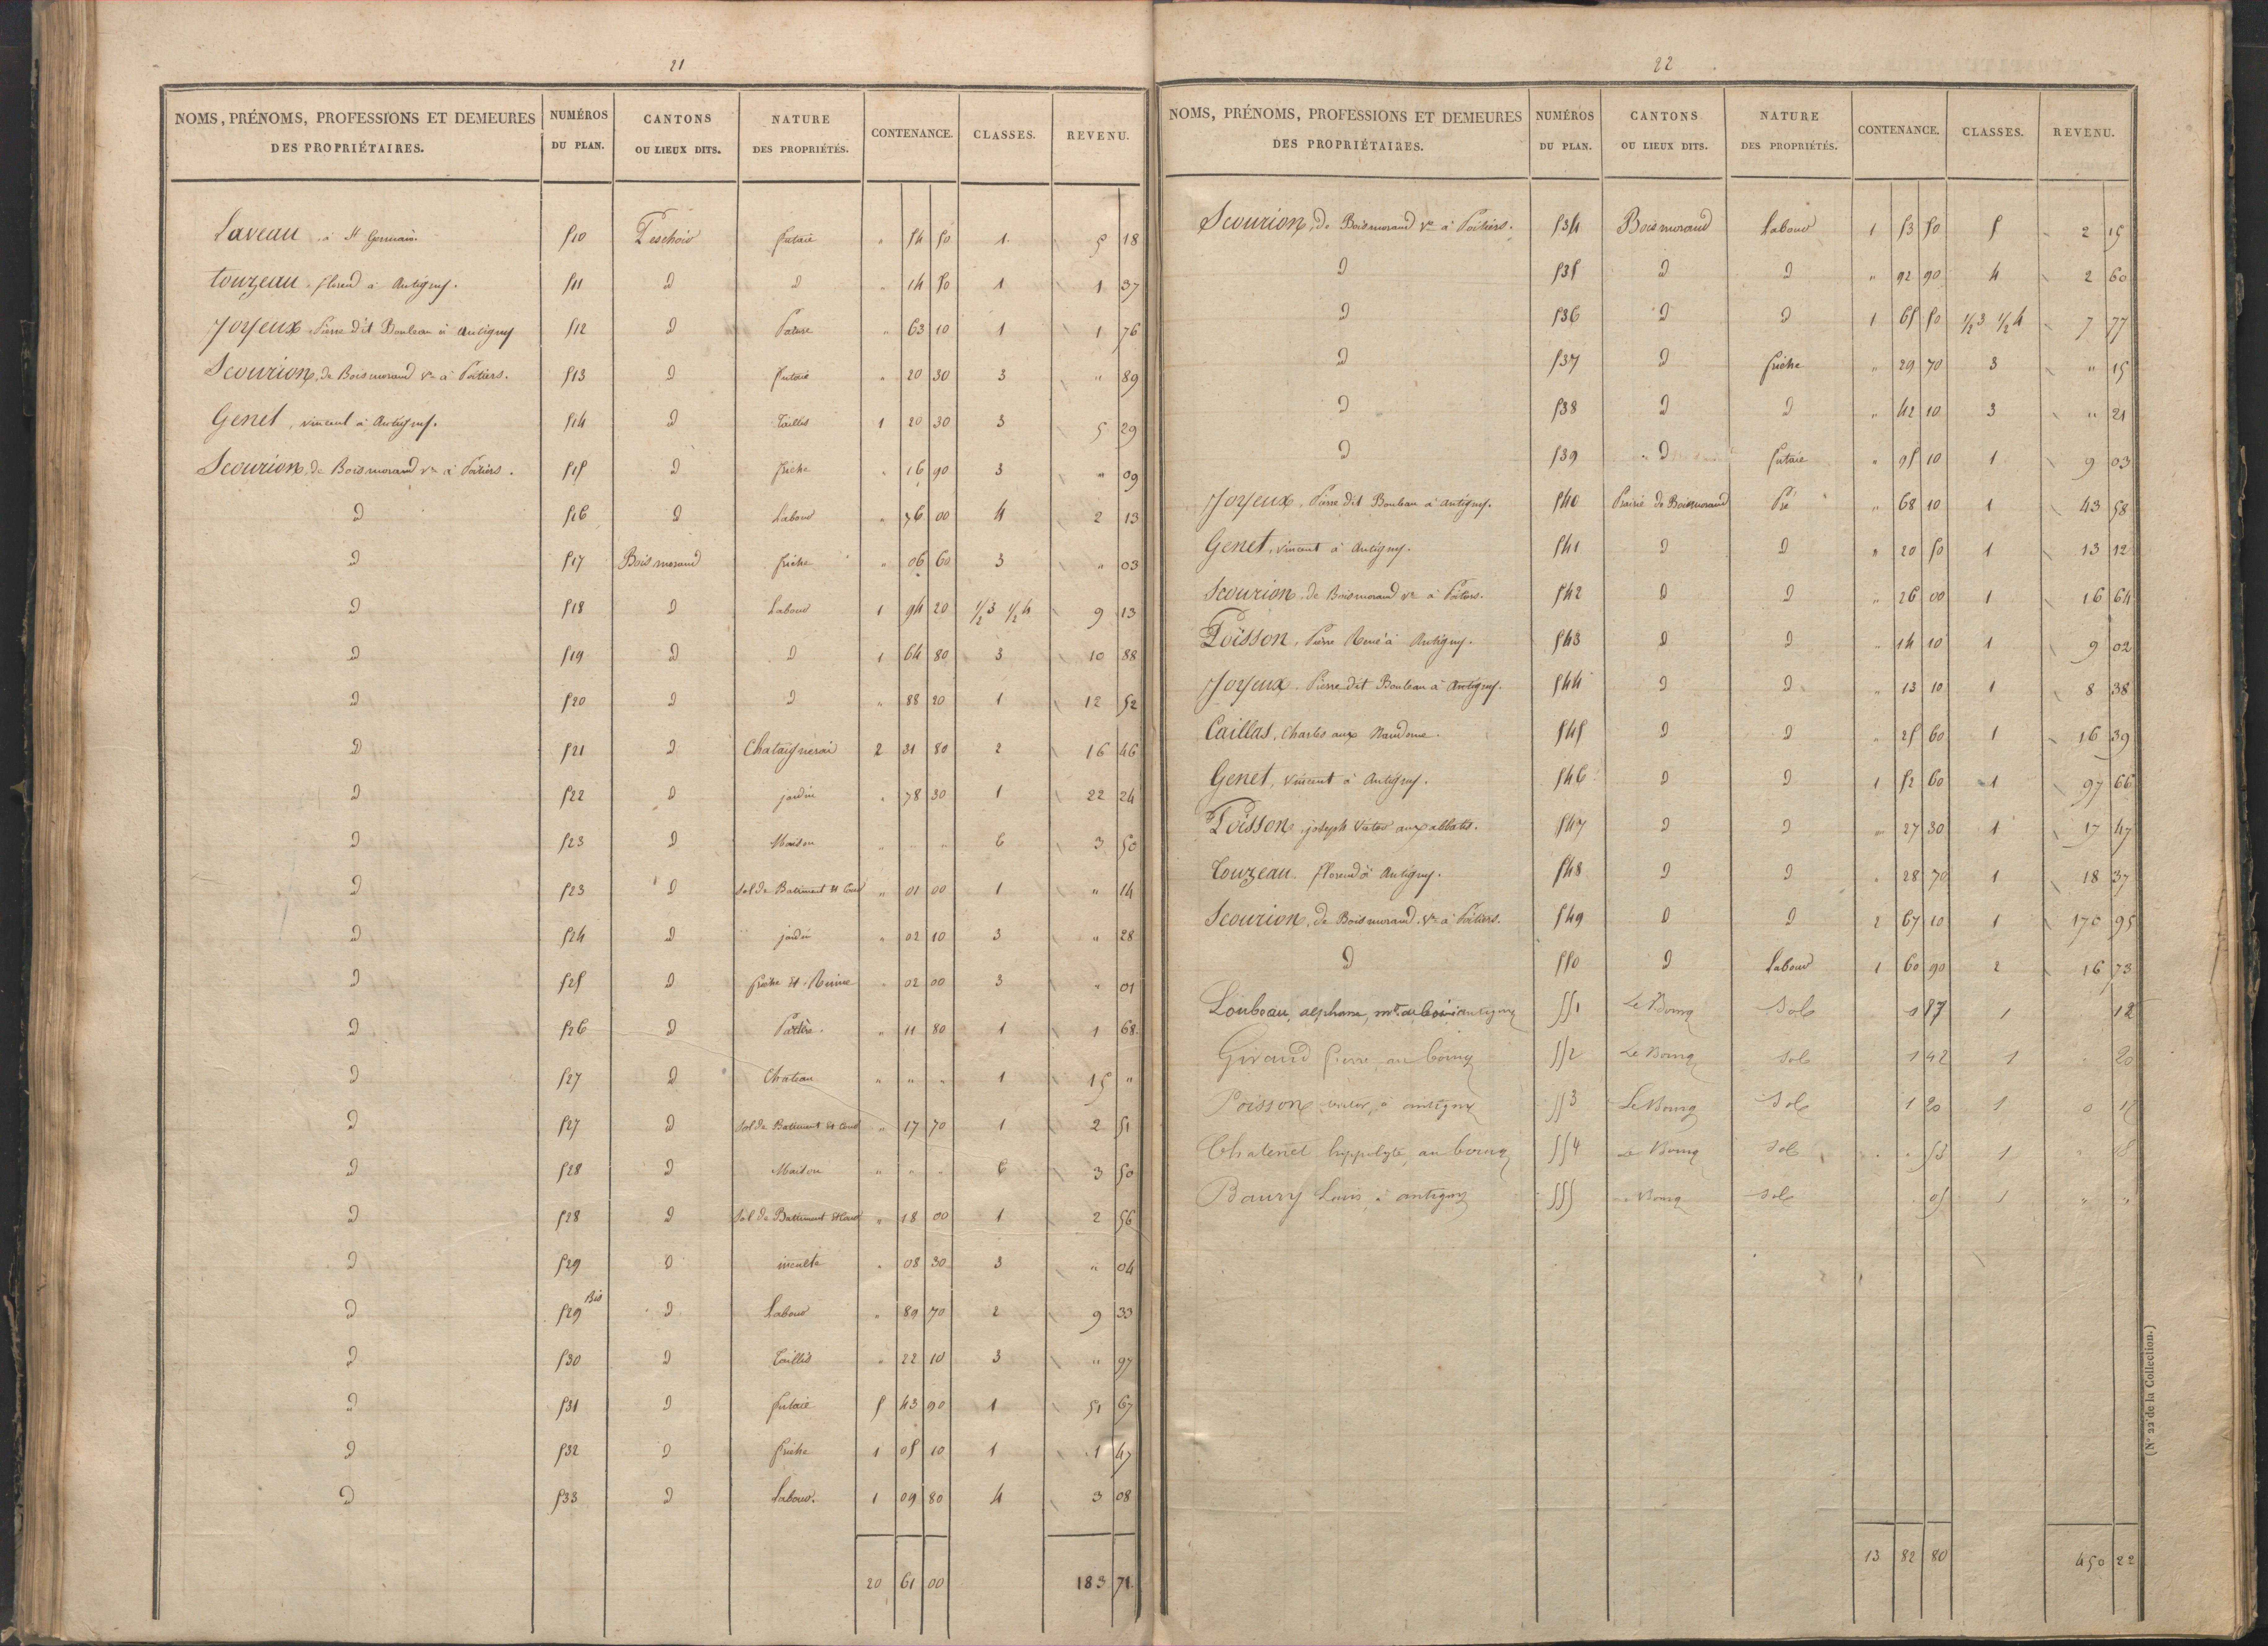 21
NOMS, PRÉNOMS, PROFESSIONS ET DEMEURES DES PROPRIÉTAIRES. NUMÉROS DU PLAN. CANTONS OU LIEUX DITS. NATURE DES PROPRIÉTÉS. CONTENANCE. CLASSES. REVENU.
Laveau à St Germain. 510 Peschoir futaie " 54 50 1 5 18
Touzeau florend à Antigny. 511 D D " 14 50 1 1 37
Joyeux Pierre dit Bouleau à Antigny 512 D Pature " 63 10 1 1 76
Scourion, de Boismorand Ve à Poitiers. 513 D futaie " 20 30 3 " 89
Genet, vincent à Antigny. 514 D Taillis 1 20 30 3 5 29
Scourion, de Boismorand Ve à Poitiers. 515 D friche " 16 90 3 " 09
D 516 D Labour " 76 00 4 2 13
D 517 Bois morand friche " 06 60 3 " 03
D 518 D Labour 1 94 20 1/2 3 1/2 4 9 13
D 519 D D 1 64 80 3 10 88
D 520 D D " 88 20 1 12 52
D 521 D Chataigneraie 2 31 80 2 16 46
D 522 D jardin " 78 30 1 22 24
D 523 D Maison " " " 6 3 50
D 523 D Sol de Batiment et Cour " 01 00 1 " 14
D 524 D jardin " 02 10 3 " 28
D 525 D friche et Ruine " 02 00 3 " 01
D 526 D " 11 80 1 1 68
D 527 D Chateau " " " 1 15 "
D 527 D Sol de Batiment et Cour " 17 70 1 2 51
D 528 D Maison " " " 6 3 50
D 528 D Sol de Batiment et Cour " 18 00 1 2 56
D 529 D inculte " 08 30 3 " 04
D 529 Bis D Labour " 89 70 2 9 33
D 530 D Taillis " 22 10 3 " 97
D 531 D futaie 5 43 90 1 51 67
D 532 D friche 1 05 10 1 1 47
D 533 D Labour. 1 09 80 4 3 08
20 61 00 183 71
22
NOMS, PRÉNOMS, PROFESSIONS ET DEMEURES DES PROPRIÉTAIRES. NUMÉROS DU PLAN. CANTONS OU LIEUX DITS. NATURE DES PROPRIÉTÉS. CONTENANCE. CLASSES. REVENU.
Scourion, de Boismorand Ve à Poitiers. 534 Bois morand Labour 1 53 50 5 2 15
D 535 D D " 92 90 4 2 60
D 536 D D 1 65 50 1/2 3 1/2 4 7 77
D 537 D friche " 29 70 3 " 15
D 538 D D " 42 10 3 " 21
D 539 D futaie " 95 10 1 9 03
Joyeux, Pierre dit Bouleau à Antigny. 540 Prairie de Boismorand Pré " 68 10 1 43 58
Genet, vincent à Antigny. 541 D D " 20 50 1 13 12
Scourion, de Boismorand Ve à Poitiers. 542 D D " 26 00 1 16 64
Poisson, Pierre René à Antigny. 543 D D " 14 10 1 9 02
Joyeux, Pierre dit Bouleau à Antigny. 544 D D " 13 10 1 8 38
Caillas, Charles aux 545 D D " 25 60 1 16 39
Genet, Vincent à Antigny. 546 D D 1 52 60 1 97 66
Poisson, joseph Victor aux abbatis. 547 D D " 27 30 1 17 47
Touzeau, florend à Antigny. 548 D D " 28 70 1 18 37
Scourion, de Boismorand, Ve à Poitiers. 549 D D 2 67 10 1 170 95
D 550 D Labour 1 60 90 2 16 73
Loubeau, alphonse, 551 Le Bourg Sol 1 87 1 12
Giraud Pierre, au bourg 552 Le Bourg Sol 1 42 1 20
Poisson à antigny 553 Le Bourg Sol 1 20 1 0
Chatenet hippolyte, au bourg 554 Le Bourg Sol " " 53 1 " 8
Baury Louis à antigny 555 Bourg Sol " 05 1 " "
13 82 80 450 22
(N° 22 de la Collection.)